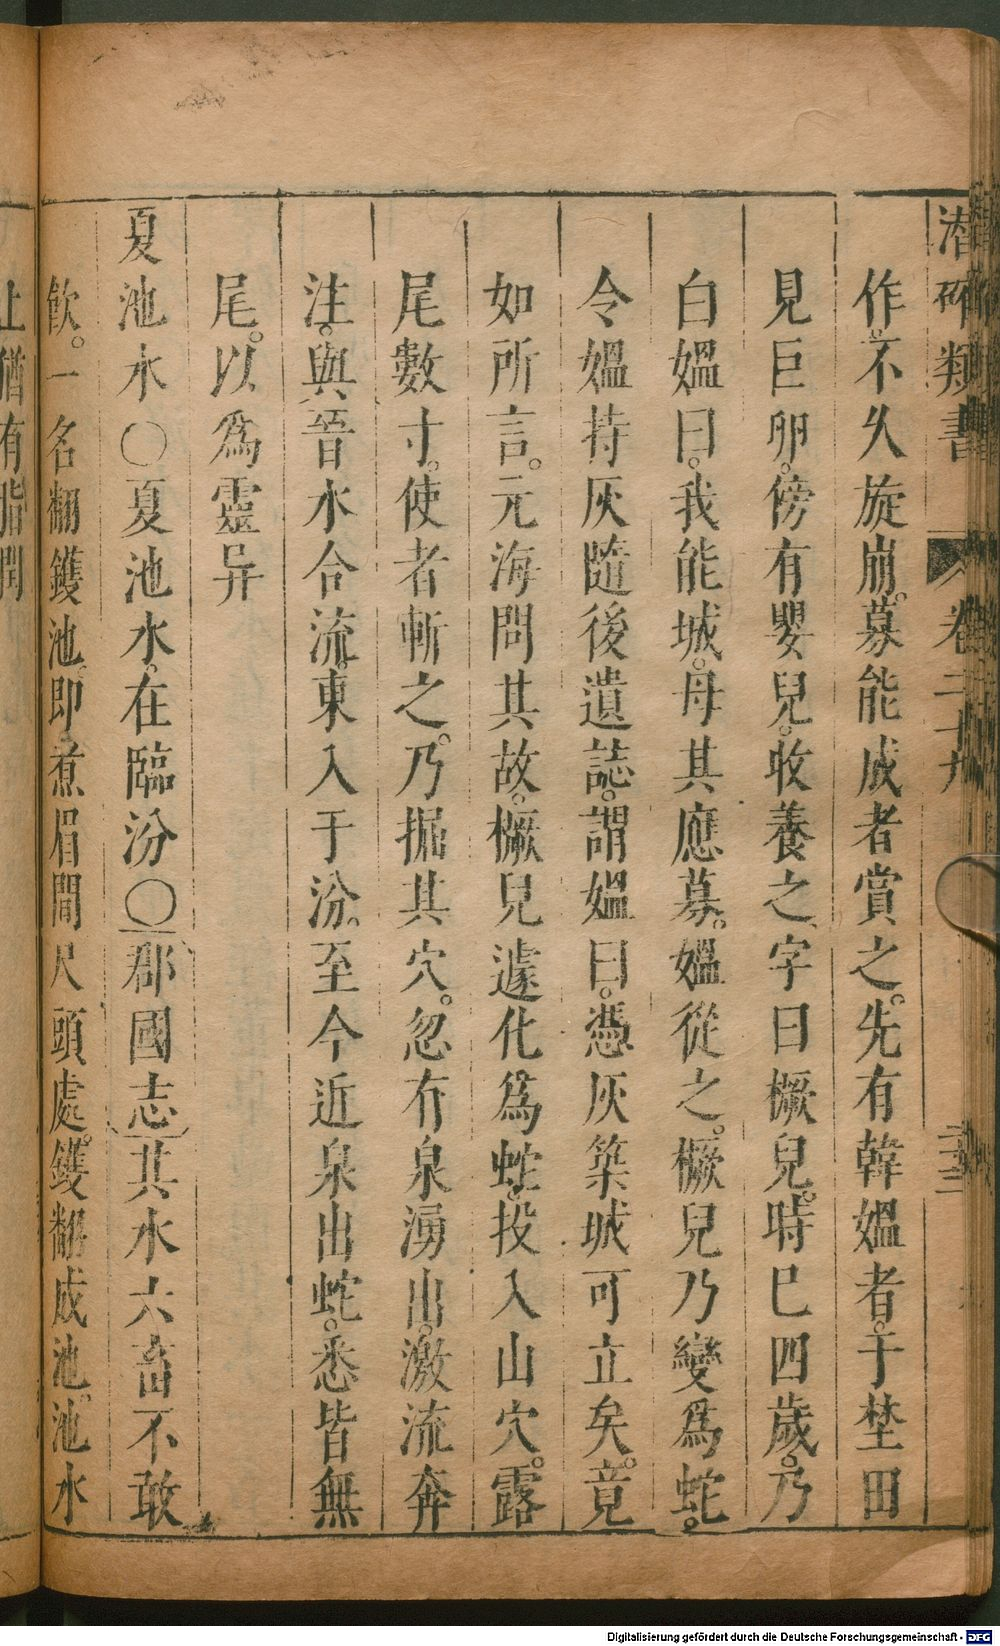 潛確類書 卷二十九 二十三
作。不久旋崩。募能成者賞之。先有韓媼者。于埜田
見巨卵。傍有嬰兒。收養之字曰橛兒。時巳四歲。乃
白媼曰。我能城。母其應募。媼從之。橛兒乃變爲蛇。
令媼持灰隨後遺誌。謂媼曰。憑灰築城可立矣。竟
如所言。元海問其故。橛兒遽化爲蛇。投入山穴。露
尾數寸。使者斬之。乃掘其穴。忽有泉湧出。激流奔
注。與晉水合流。東入于汾。至今近泉出蛇。悉皆無
尾。以爲靈异
夏池水〇夏池水。在臨汾〇郡國志其水六畜不敢
飲。一名翻鑊池。即煮眉間尺頭處。鑊翻成池。池水
上猶有脂潤
Digitalisierung gefördert durch die Deutsche Forschungsgemeinschaft - DFG